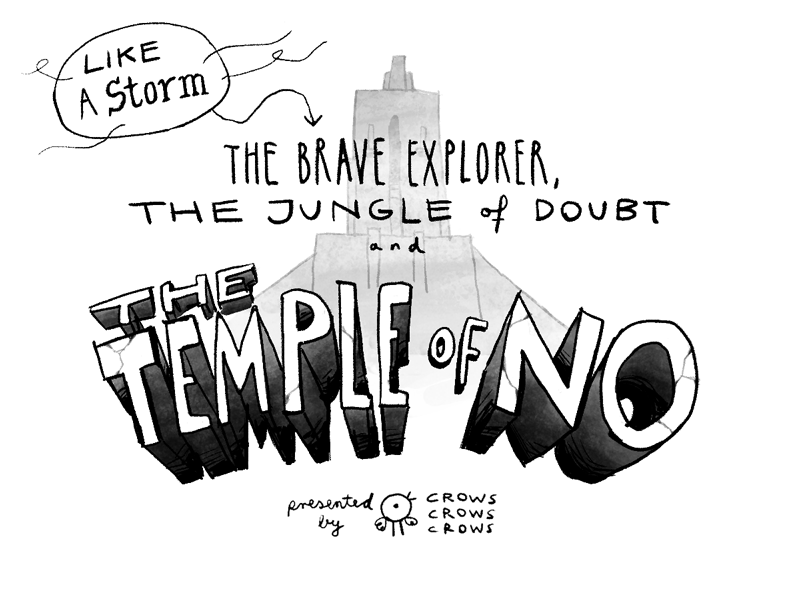 LIKE
A Storm
THE BRAVE EXPLORER,
THE JUNGLE of DOUBT
and
THE
TEMPLE OF NO
presented
by
CROWS
CROWS
CROWS